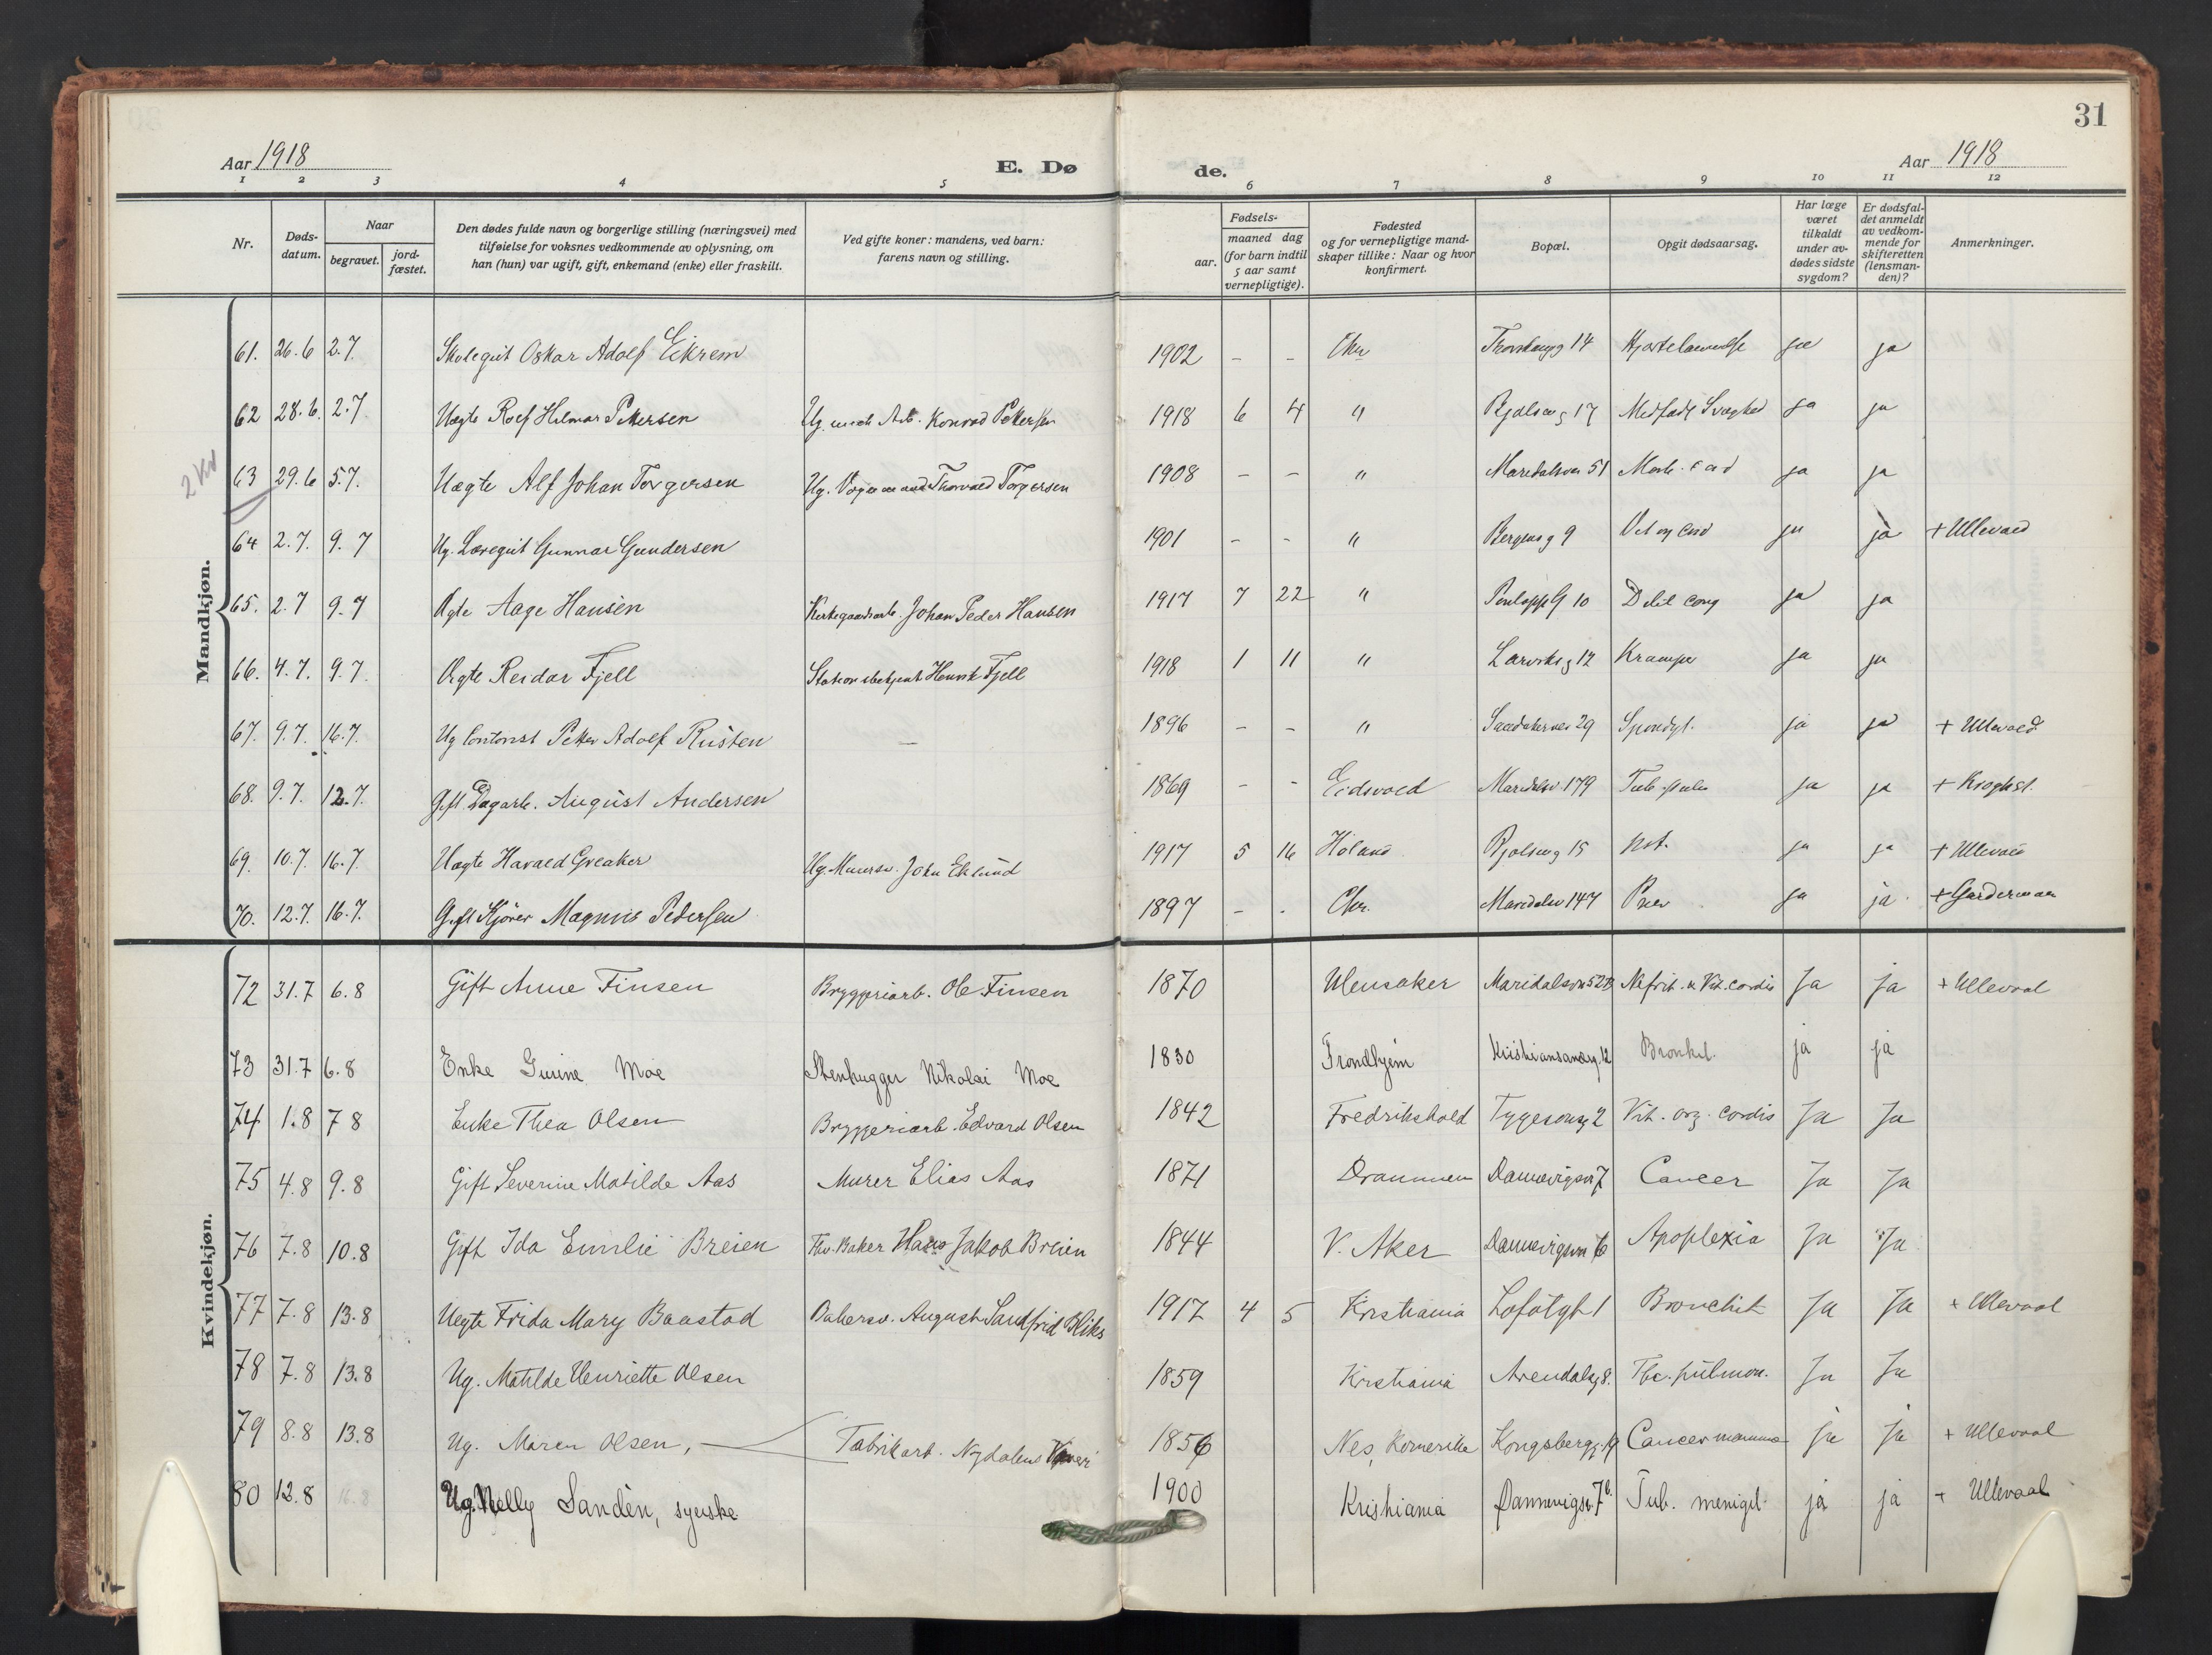 31
Aar 1918 E. Dø de. Aar 1918
1 2 3 4 5 6 7 8 9 10 11 12
Nr. Døds-datum. Naar begravet. jord-fæstet. Den dødes fulde navn og borgerlige stilling (næringsvei) med tilføielse for voksnes vedkommende av oplysning, om han (hun) var ugift, gift, enkemand (enke) eller fraskilt. Ved gifte koner: mandens, ved barn: farens navn og stilling. Fødsels- aar. maaned dag (for barn indtil 5 aar samt vernepligtige). Fødested og for vernepligtige mand-skaper tillike: Naar og hvor konfirmert. Bopæl. Opgit dødsaarsag. Har læge været tilkaldt under av-dødes sidste sygdom? Er dødsfal-det anmeldt av vedkom-mende for skifteretten (lensman-den)? Anmerkninger.
Mandkjøn.
61. 26.6 2.7. Skolegut Oskar Adolf Eikrem 1902 - - Chr 14 ja ja
62 28.6. 2.7. Uægte Rolf Hilmar Pettersen Ug. Arb. Konrad Pettersen 1918 6 4 " 17 Medfødt Svaghed ja ja
2 Kv
63 29.6 5.7. Uægte Alf Johan Torgersen Ug. Thorvald Torgersen 1908 - - " Maridalsvn 51 ja ja
64 2.7. 9.7 Ug. Læregut Gunnar Gundersen 1901 - - " Bergensg 9 ja ja + Ullevaal
65. 2.7 9.7 Ægte Aage Hansen Kirkegaardsarb. Johan Peder Hansen 1917 7 22 " 10 ja ja
66. 4.7. 9.7. Ægte Reidar Fjell Stationsbetjent Henrik Fjell 1918 1 11 " Larviksg 12 Kramper ja ja
67. 9.7. 16.7. Ug Contorist Petter Adolf Rusten - 1896 - - " 29 Spondyl. ja ja + Ullevaal
68. 9.7. 12.7. Gift Dagarb. August Andersen 1869 - - Eidsvold Maridalsv 179 ja ja + Kroghst.
69. 10.7. 16.7. Uægte Harald Greaker Ug. Murersv. John Eklund 1917 5 16 Høland 15 ja ja + Ullevaal
70. 12.7. 16.7. Gift Kjører Magnus Pedersen 1897 - - Chr. Maridalsv 147 Pnev ja ja + Gardermoen
Kvindekjøn.
72 31.7 6.8 Gift Anne Finsen Bryggeriarb. Ole Finsen 1870 Ulensaker Maridalsvn 52B Nefrit. & Vit. cordis Ja Ja + Ullevaal
73 31.7 6.8 Enke Gurine Moe Stenhugger Nikolai Moe 1830 Trondhjem Kristiansandsg. 12 Bronkit. ja ja
74 1.8 7 8 Enke Thea Olsen Bryggeriarb. Edvard Olsen 1842 Fredrikshald Tygesonsg 2 Vit. org. cordis Ja Ja
75 4.8 9.8 Gift Severine Matilde Aas Murer Elias Aas 1871 Drammen Dannevigsvn 7 Cancer Ja Ja
76 7.8 10.8 Gift Ida Emilie Breien Fhv. Baker Hans Jakob Breien 1844 V. Aker Dannevigsvn 16 Apoplexia Ja Ja
77 7.8 13.8 Uegte Frida Mary Baastad Bakersv. August Sandfrid Bliks 1917 4 5 Kristiania Lofotgt 1 Bronchit Ja Ja + Ullevaal
78 7.8 13.8 Ug. Matilde Henriette Olsen 1859 Kristiania Arendalsg 8. Tbc. pulmon. Ja Ja
79 8.8 13.8 Ug. Maren Olsen, - Fabrikarb. Nydalens Væveri 1856 Nes, Romerike Kongsbergg. 19 Cancer mamma ja ja + Ullevaal
80 12.8 16.8 Ug. Nelly Sandèn, syerske 1900 Kristiania Dannevigsv. 7b. Tub. menigit. ja ja + Ullevaal